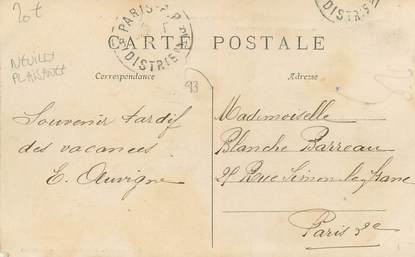 20€
NEUILLY
PLAISANCE
CARTE POSTALE
Correspondance
Adresse
93
Souvenir tardif
des vacances
E. Auvigne
Mademoiselle
Blanche Barreau
Rue Simon le franc
Paris
PARIS
DISTRI
DISTRI